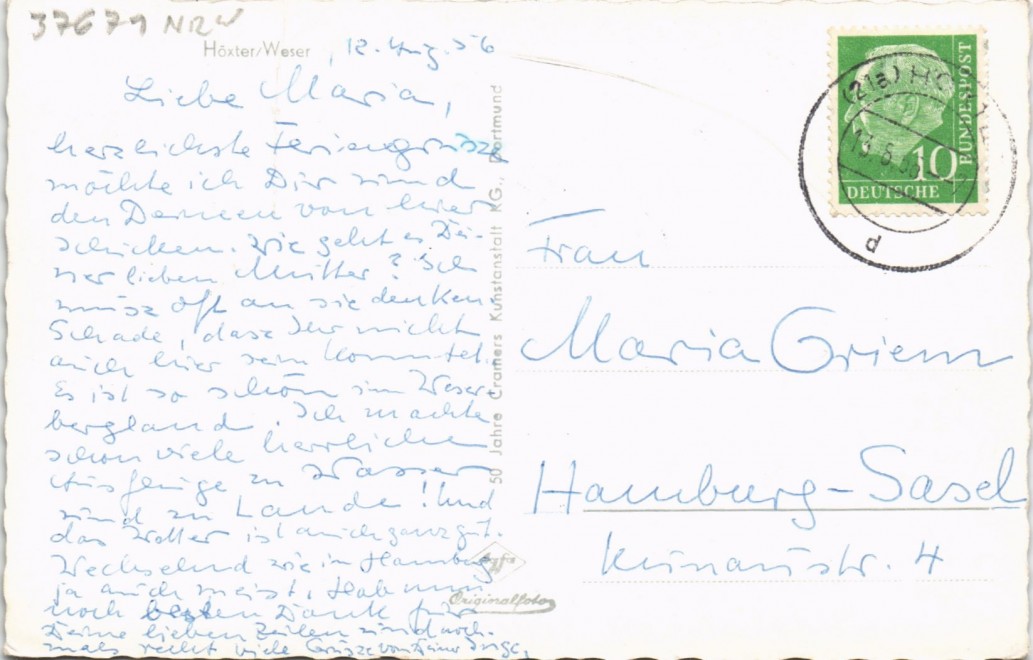 37671 NRW
Höxter/Weser, 12. Aug. 56
Liebe Maria,
herzlichste Feriengrüsze
möchte ich Dir und
den Deinen von hier
schicken. Wie geht es Dei-
ner lieben Mutter? Ich
musz oft an sie denken.
Schade, dasz Ihr nicht
auch hier sein konntet.
Es ist so schön im Weser-
bergland. Ich machte
schon viele herrliche
Ausflüge zu Wasser
und zu Lande! Und
das Wetter ist auch ganz gut.
Wechselnd wie in Hamburg
ja auch meist. Hab nun
noch besten Dank für
Deine lieben Zeilen und noch-
mals recht viele Grüsze von Deiner Inge.
50 Jahre Cramers Kunstanstalt KG., Dortmund
Agfa
Originalfoto
(21a) HÖXTER
d
10
DEUTSCHE
BUNDESPOST
Frau
Maria Griem
Hamburg-Sasel
Kunaustr. 4